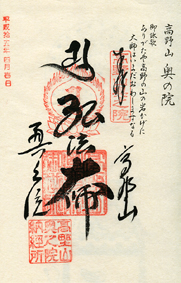 高野山 奥の院
御詠歌
ありがたや高野の山の岩かげに
大師はいまだおわしまますなる
奉拝
弘法大師
高野山
奥之院
高野山
奥之院
納経所